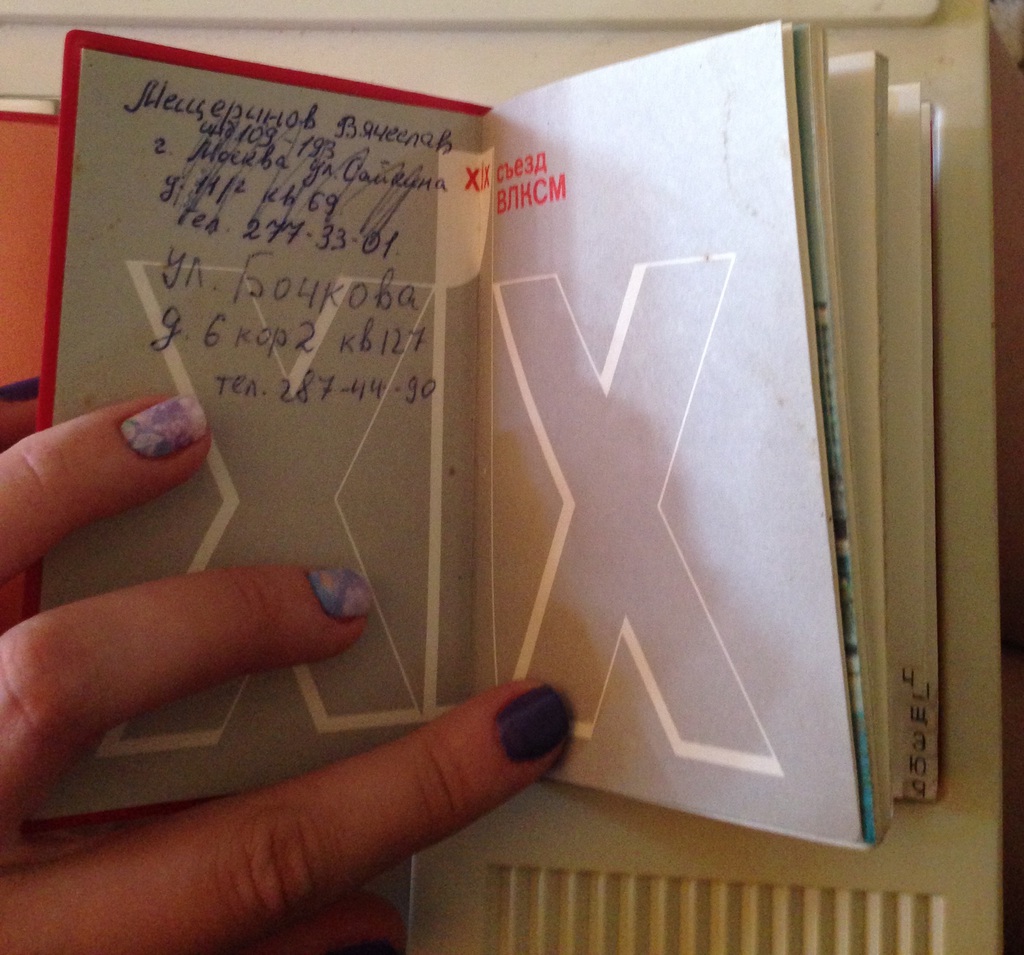 Мещеринов Вячеслав
109-193
г. Москва ул. Сайкина
д. 11/2 кв 69
тел. 277-33-01.
ул. Бочкова
д. 6 кор 2 кв 127
тел. 287-44-90
XIX съезд
ВЛКСМ
XIX